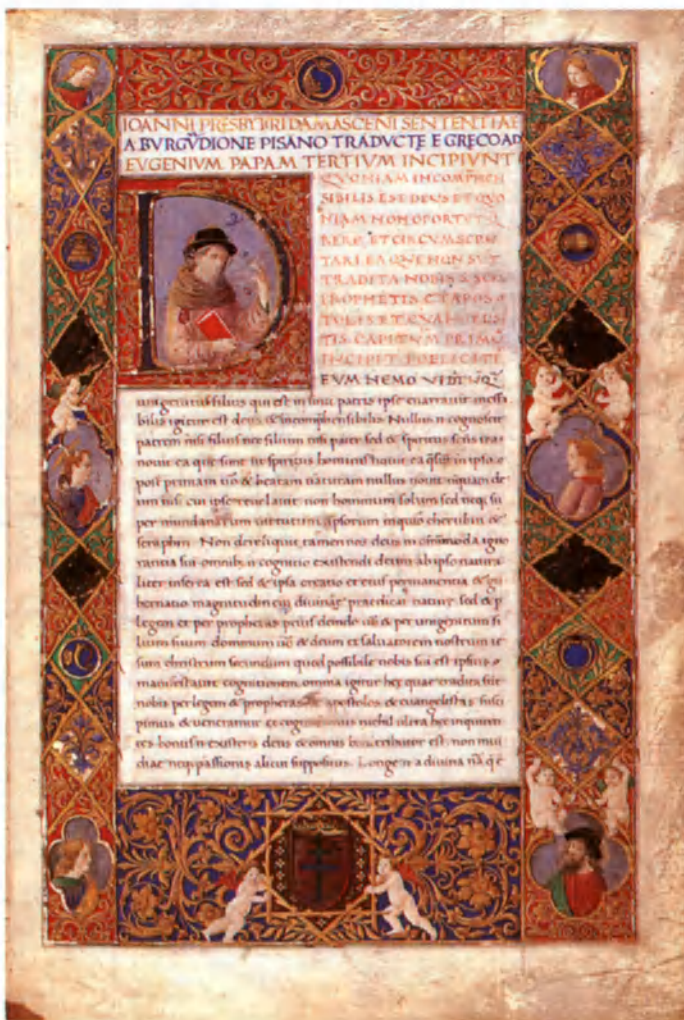 IOANNI PRESBYTERI DAMASCENI SENTENTIAE
A BURGŪDIONE PISANO TRADUCTE E GRECO AD
EUGENIUM PAPAM TERTIUM INCIPIUNT
QUONIAM INCOMPREHEN
SIBILIS EST DEUS ET QUO
NIAM NON OPORTET
RERE ET CIRCUMSCRU
TARI EA QUE NON SŪT
TRADITA NOBIS A SCĪS
PROPHETIS ET APOS
TOLIS ET EVANGELIS
TIS CAPITULUM PRIMŪ
INCIPIT
EUM NEMO VIDIT
unigenitus filius qui est in sinu patris ipse enarravit ineffa
bilis igitur est deus & incomprehensibilis Nullus n cognoscit
patrem nisi filius nec filium nisi pater sed & spiritus scūs
novit ea que sunt spiritus hominis novit ea in ipso
post primam & beatam naturam nullus novit deū
nisi cui ipse revelavit non hominum solum sed neq; su
per mundanarum virtutum ipsorum inquio cherubin &
seraphin Non dereliquit tamen nos deus in omīmoda igno
rantia sui omnib; n cognitio existendi deum ab ipso natura
liter inserta est sed & ipsa creatio et eius permanentia & gu
bernatio magnitudinem divinae praedicat nature sed & p
legem et per prophetas prius deinde & per unigenitum fi
lium suum dominum & deum et salvatorem nostrum ie
sum christum secundum quod possibile nobis
manifestavit cognitionem omnia igitur hec quae tradita sūt
nobis per legem & prophetas & apostolos & euangelistas susci
pimus & veneramur et cognoscimus nichil ultra hec inquiren
tes bonus n existens deus & omnis boni tributor est non
neq; passionis alicui suppositus. Longe n a divina nā